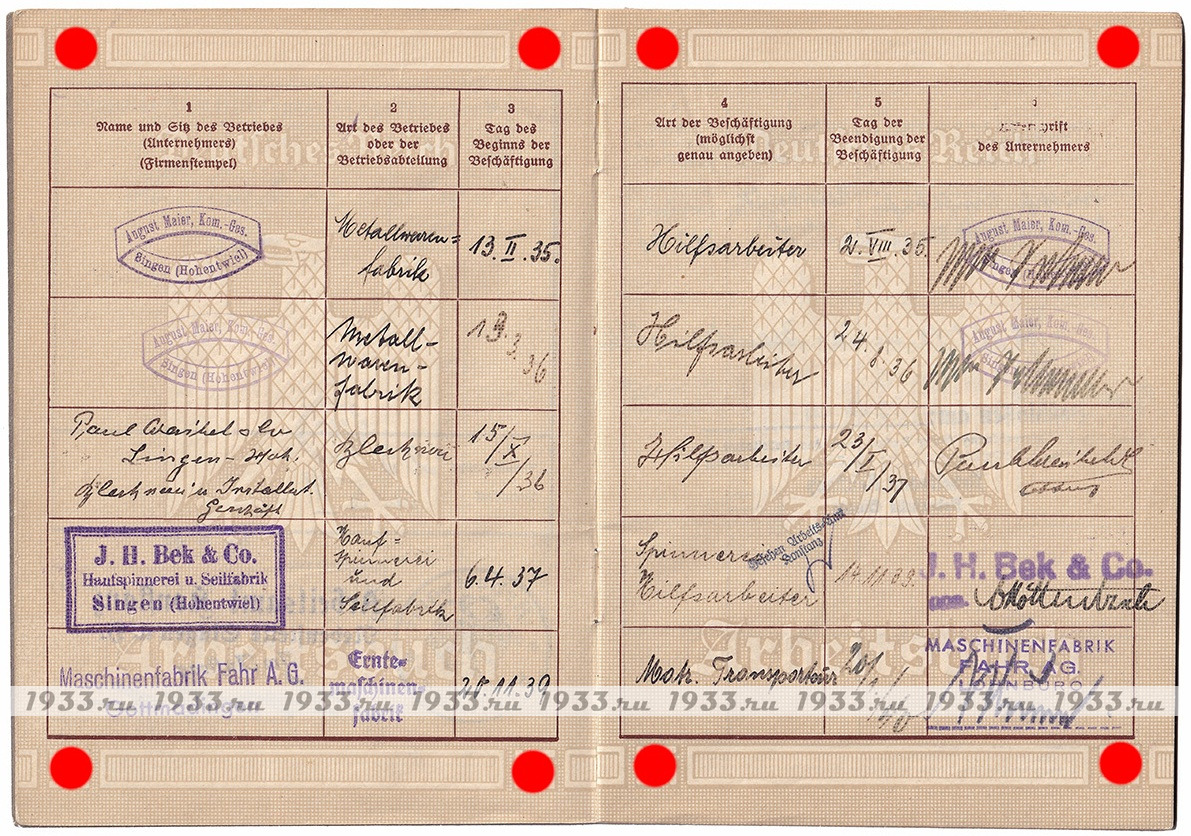 1
Name und Sitz des Betriebes
(Unternehmers)
(Firmenstempel)
2
Art des Betriebes
oder der
Betriebsabteilung
3
Tag des
Beginns der
Beschäftigung
4
Art der Beschäftigung
(möglichst
genau angeben)
5
Tag der
Beendigung der
Beschäftigung
des Unternehmers
Deutsches Reich
August Maier, Kom.-Ges.
Singen (Hohentwiel)
Metallwaren=
fabrik
13.II.35.
Hilfsarbeiter
2.VIII.35.
August Maier, Kom.-Ges.
August Maier, Kom.-Ges.
Singen (Hohentwiel)
Metall-
waren-
fabrik
13.
3.
36
Hilfsarbeiter
24
8.36
August Maier, Kom.-Ges.
Paul
Singen
Geschäft
15/
X/
36
Hilfsarbeiter
23/
I/
37
J. H. Bek & Co.
Hanfspinnerei u. Seilfabrik
Singen (Hohentwiel)
Hanf=
spinnerei
und
Seilfabrik
6.4.37
Spinnerei
Hilfsarbeiter
Konstanz
14.11.39
J. H. Bek & Co.
Arbeitsbuch
Maschinenfabrik Fahr A.G.
Gottmadingen
Ernte-
maschinen-
fabrik
25.11.39
Transporteur
MASCHINENFABRIK
FAHR AG.
1933.ru 1933.ru 1933.ru 1933.ru 1933.ru 1933.ru 1933.ru 1933.ru 1933.ru